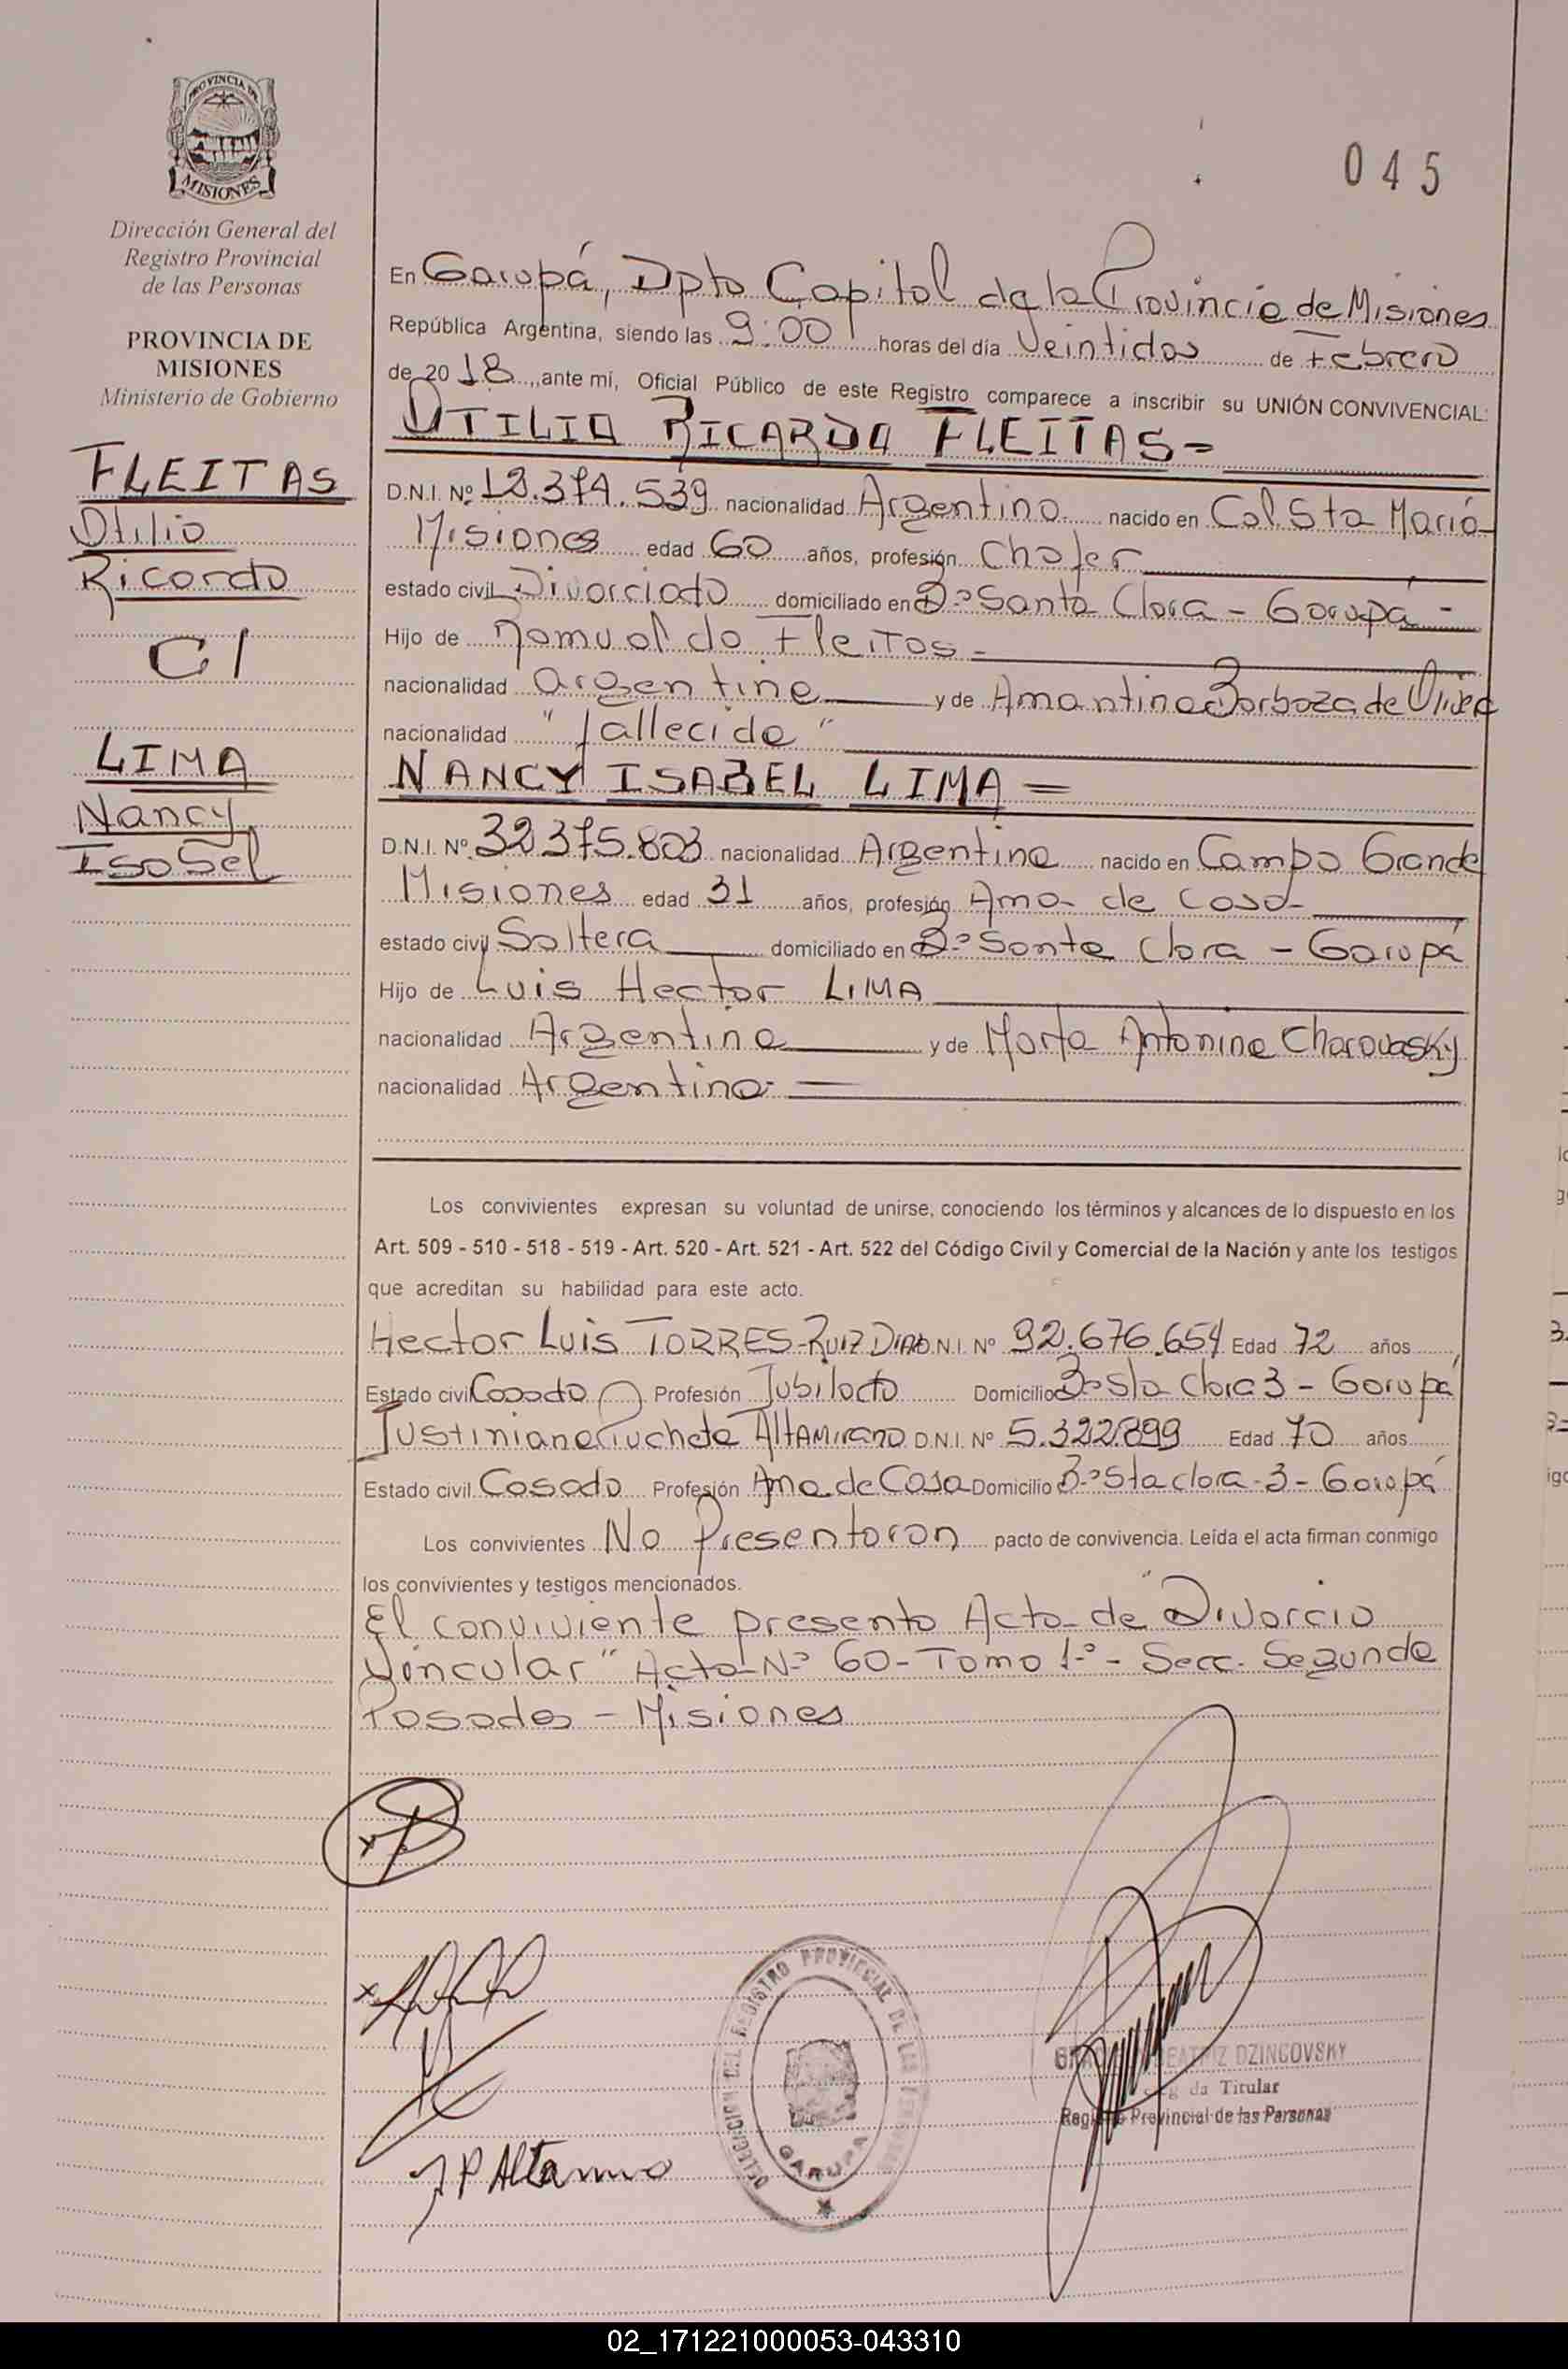 PROVINCIA DE
MISIONES
Dirección General del
Registro Provincial
de las Personas
PROVINCIA DE
MISIONES
Ministerio de Gobierno
FLEITAS
Otilio
Ricardo
C/
LIMA
Nancy
Isabel
045
En Garupá, Dpto Capital de la Provincia de Misiones
República Argentina, siendo las 9:00 horas del día Veintidos de Febrero
de 2018, ante mí, Oficial Público de este Registro comparece a inscribir su UNIÓN CONVIVENCIAL:
OTILIO RICARDO FLEITAS=
D.N.I. Nº 12.374.539 nacionalidad Argentina nacido en Col. Sta María
Misiones edad 60 años, profesión Chofer
estado civil Divorciado domiciliado en Bº Santa Clara - Garupá -
Hijo de Romualdo Fleitas -
nacionalidad argentina y de Amantina Barboza de Olivera
nacionalidad "fallecida"
NANCY ISABEL LIMA =
D.N.I. Nº 32.375.803 nacionalidad Argentina nacido en Campo Grande
Misiones edad 31 años, profesión Ama de casa
estado civil Soltera domiciliado en Bº Santa Clara - Garupá
Hijo de Luis Hector LIMA
nacionalidad Argentina y de Marta Antonina Charovasky
nacionalidad Argentina =
Los convivientes expresan su voluntad de unirse, conociendo los términos y alcances de lo dispuesto en los
Art. 509 - 510 - 518 - 519 - Art. 520 - Art. 521 - Art. 522 del Código Civil y Comercial de la Nación y ante los testigos
que acreditan su habilidad para este acto.
Hector Luis TORRES-RUIZ DIAZ D.N.I. Nº 92.676.654 Edad 72 años
Estado civil Casado Profesión Jubilado Domicilio Bº Sta Clara 3 - Garupá
Justiniana Pucheta Altamirano D.N.I. Nº 5.322.899 Edad 70 años
Estado civil Casado Profesión Ama de Casa Domicilio Bº Sta clara-3 - Garupá
Los convivientes No Presentaron pacto de convivencia. Leída el acta firman conmigo
los convivientes y testigos mencionados.
El conviviente presento Acta de "Divorcio
Vincular" Acta Nº 60 - Tomo 1º - Secc. Segunda
Posadas - Misiones
J P Altamirano
DELEGACION DEL REGISTRO PROVINCIAL DE LAS PERSONAS
GARUPA
BEATRIZ DZINCOVSKY
Titular
Registro Provincial de las Personas
02_171221000053-043310